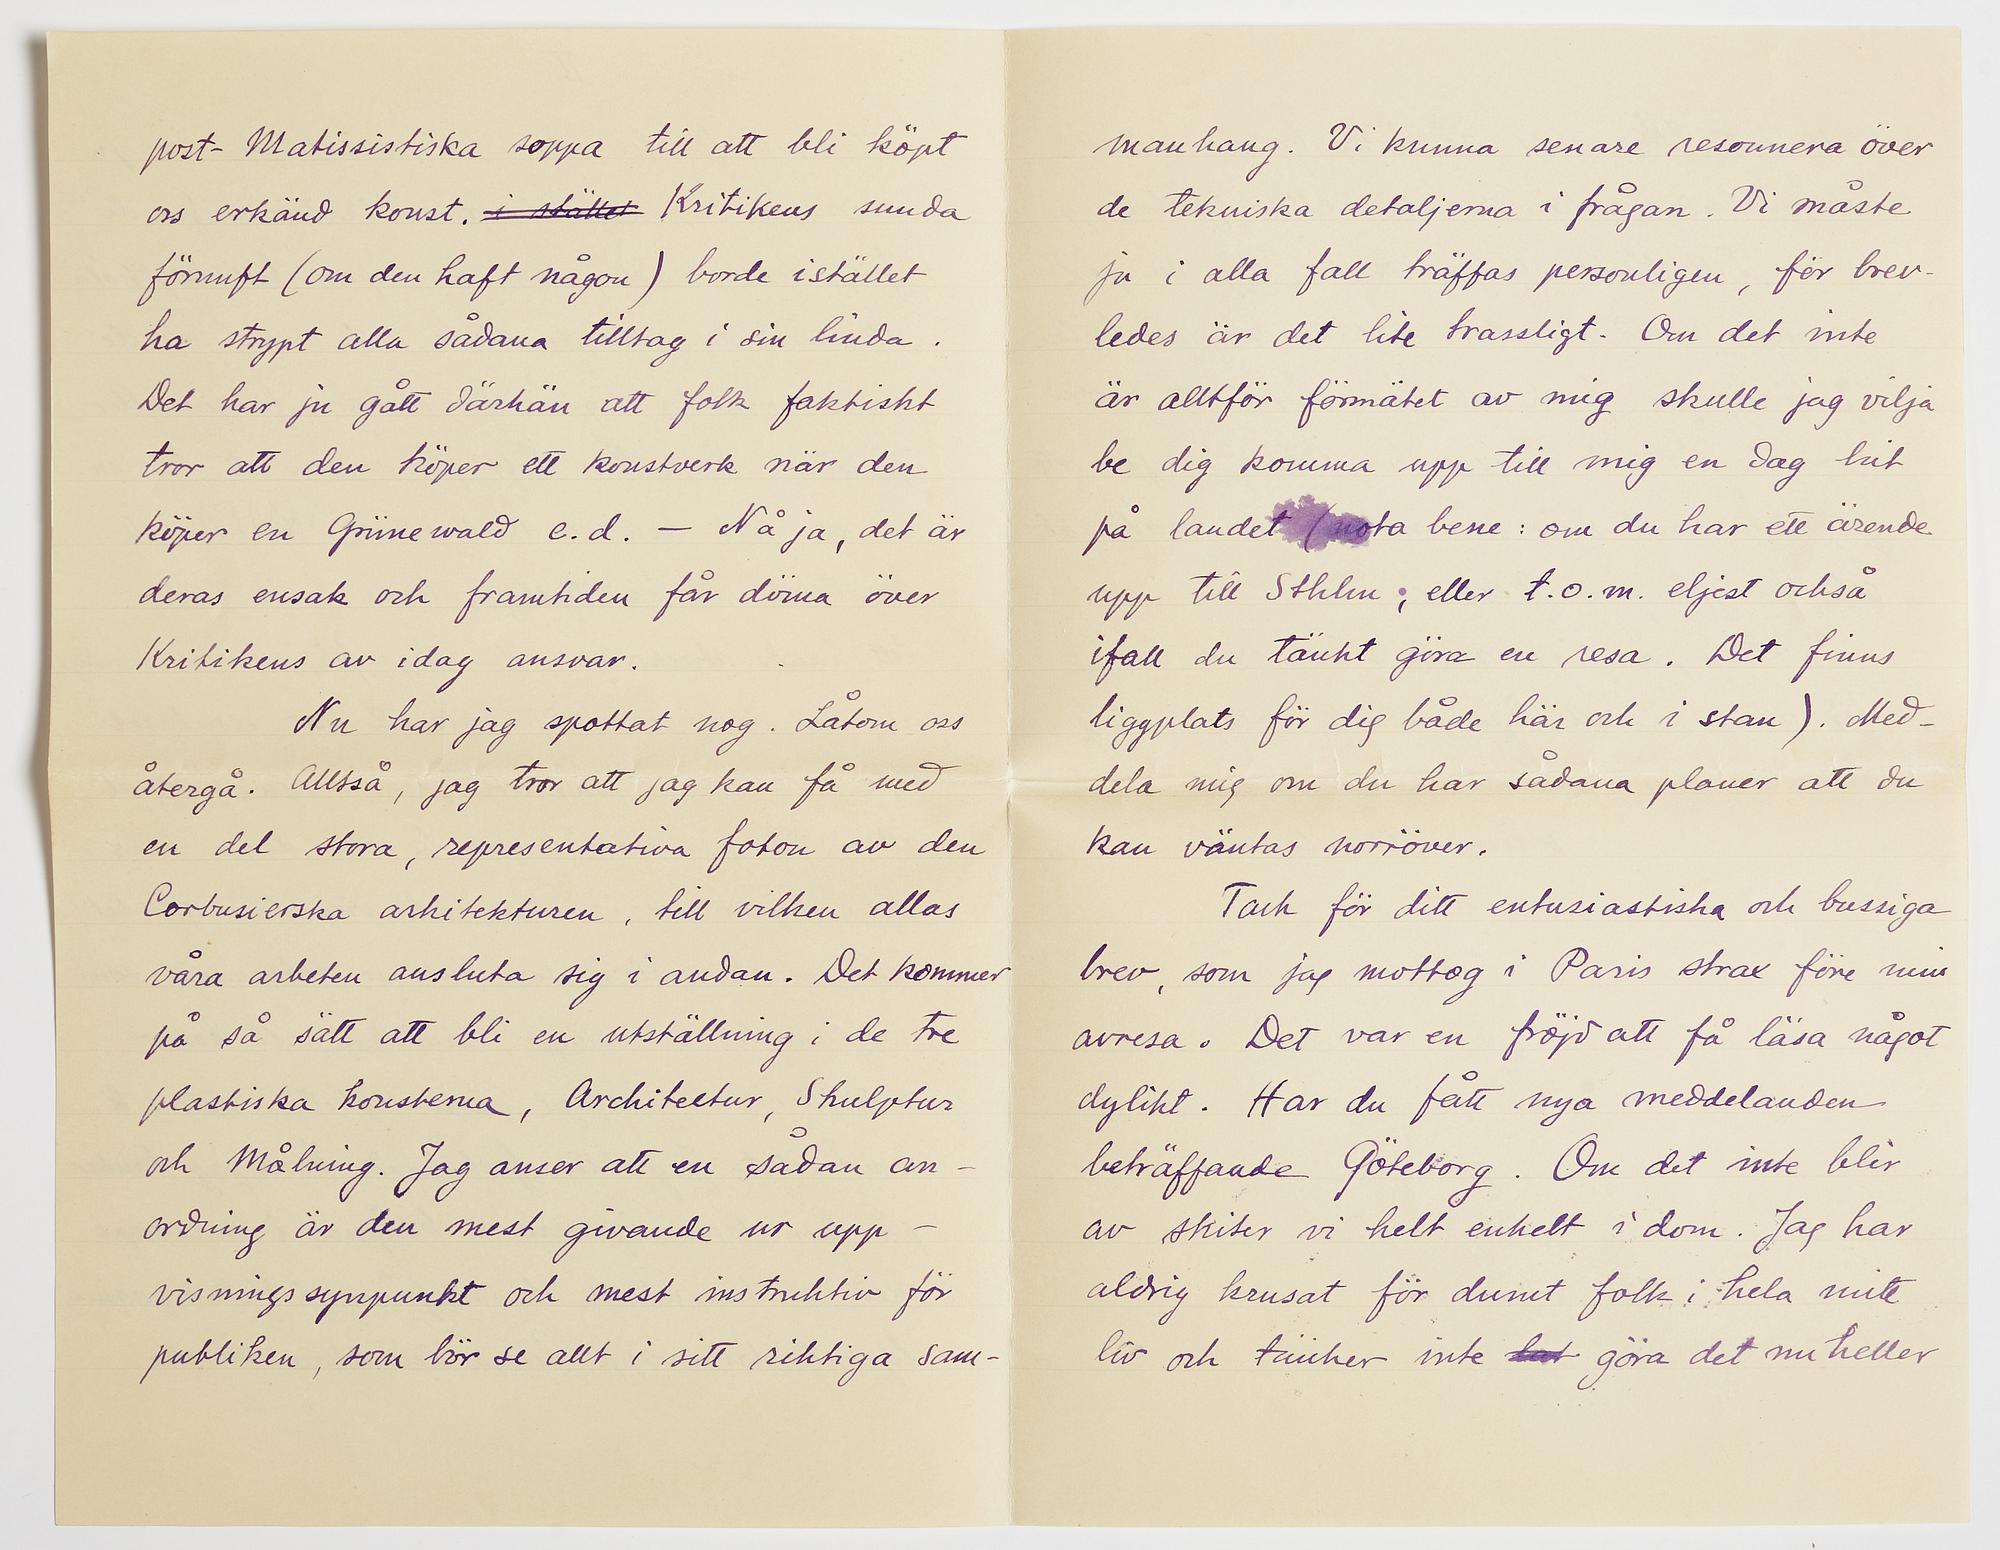 post- Matissistiska soppa till att bli köpt
ors erkänd konst. i stället Kritikens sunda
förnuft (om den haft någon) borde istället
ha strypt alla sådana tilltag i sin linda.
Det har ju gått därhän att folk faktiskt
tror att den köper ett konstverk när den
köper en Grünewald e.d. — Nå ja, det är
deras ensak och framtiden får döma över
Kritikens av idag ansvar.
Nu har jag spottat nog. Låtom oss
återgå. Alltså, jag tror att jag kan få med
en del stora, representativa foton av den
Corbusierska arkitekturen, till vilken allas
våra arbeten ansluta sig i andan. Det kommer
på så sätt att bli en utställning i de tre
plastiska konsterna, Architectur, Skulptur
och Målning. Jag anser att en sådan an-
ordning är den mest givande ur upp-
visningssynpunkt och mest instruktiv för
publiken, som bör se allt i sitt riktiga sam-
manhang. Vi kunna senare resonnera över
de tekniska detaljerna i frågan. Vi måste
ju i alla fall träffas personligen, för brev-
ledes är det lite trassligt. Om det inte
är alltför förmätet av mig skulle jag vilja
be dig komma upp till mig en dag hit
på landet (nota bene: om du har ett ärende
upp till Sthlm; eller t.o.m. eljest också
ifall du tänkt göra en resa. Det finns
liggplats för dig både här och i stan). Med-
dela mig om du har sådana planer att du
kan väntas norröver.
Tack för ditt entusiastiska och bussiga
brev, som jag mottog i Paris strax före min
avresa. Det var en fröjd att få läsa något
dylikt. Har du fått nya meddelanden
beträffande Göteborg. Om det inte blir
av skiter vi helt enkelt i dom. Jag har
aldrig krusat för dumt folk i hela mitt
liv och tänker inte göra det nu heller